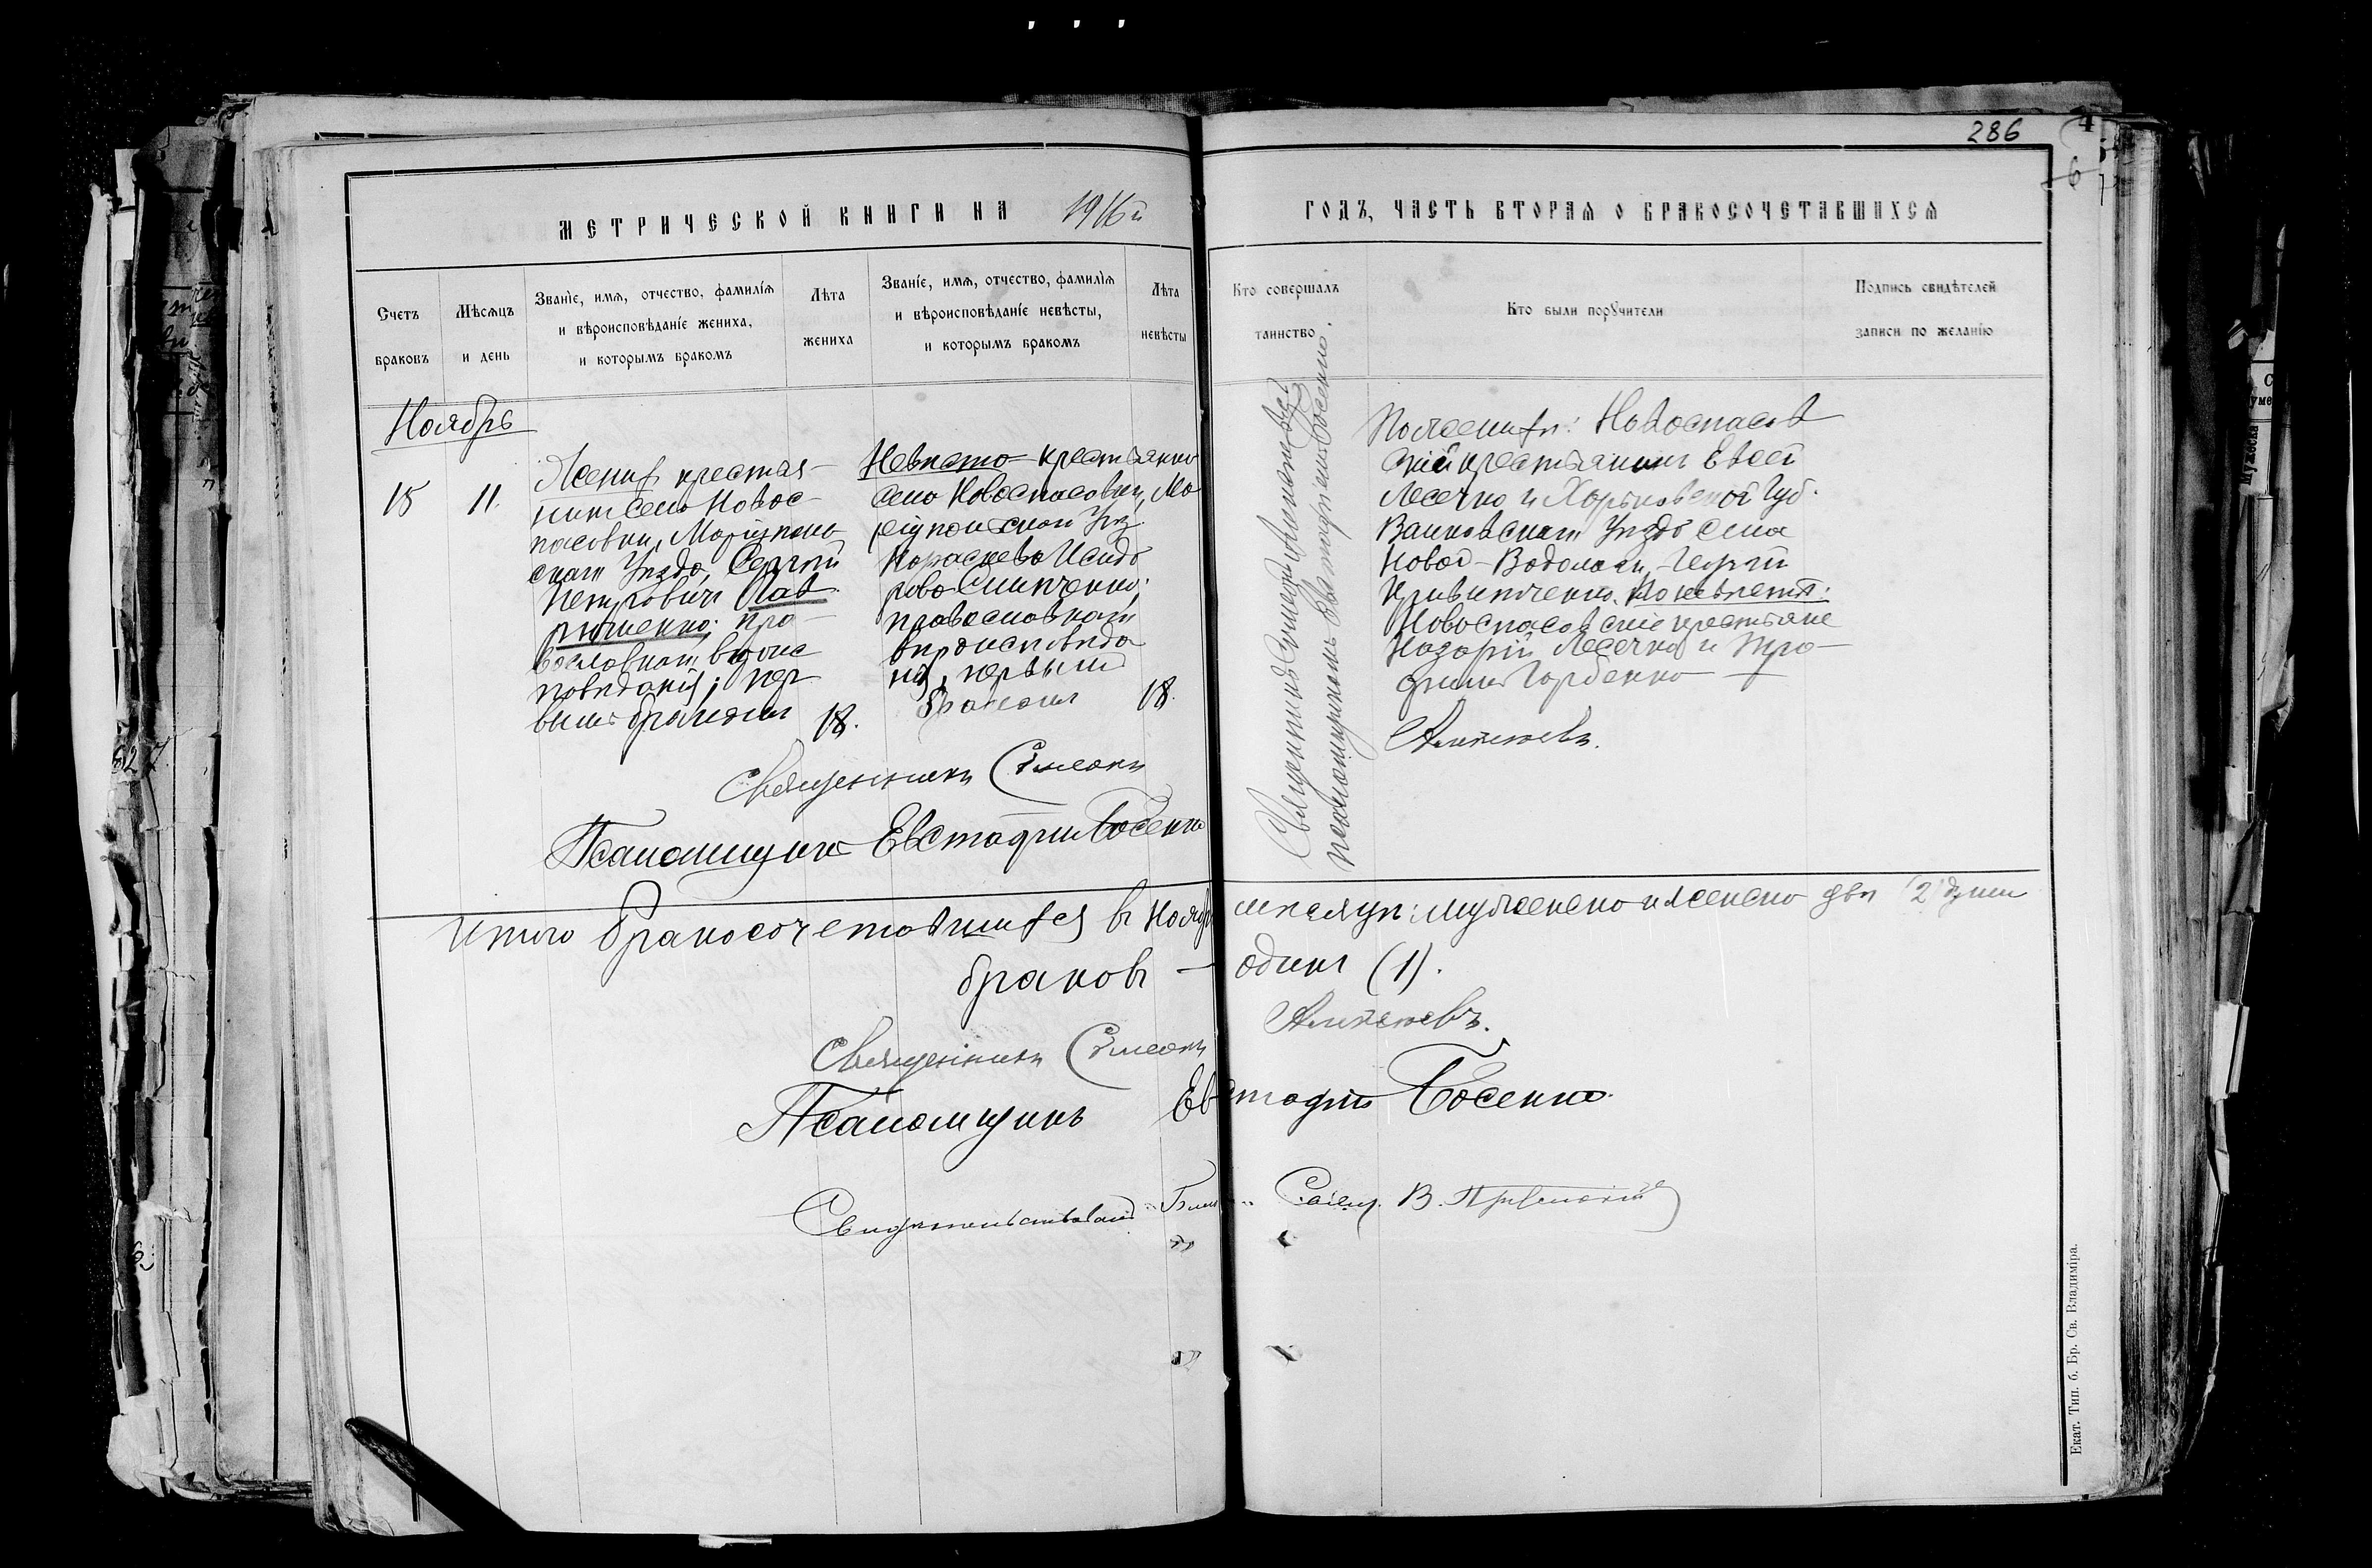 286
МЕТРИЧЕСКОЙ КНИГИ НА 1916й ГОДЪ, ЧАСТЬ ВТОРАЯ О БРАКОСОЧЕТАВШИХСЯ
Счетъ
браковъ
Мѣсяцъ
и день
Званіе, имя, отчество, фамилія
и вѣроисповѣданіе жениха,
и которымъ бракомъ
Лѣта
жениха
Званіе, имя, отчество, фамилія
и вѣроисповѣданіе невѣсты,
и которымъ бракомъ
Лѣта
невѣсты
Кто совершалъ
таинство
Кто были поручители
Подпись свидѣтелей
записи по желанію
Ноябрь
15
11.
Женихъ крестья-
нинъ села Новос-
пасовки, Маріуполь
скаго Уѣзда, Сергій
Петровичъ Лав
риненко; пра-
вославнаго вѣроис
повѣданія; пер
вымъ бракомъ
18.
Невѣста - крестьянка
села Новоспасовки, Ма
ріупольскаго Уѣз.
Параскева Исидо
рова Слипченко;
православнаго
вѣроисповѣда
нія, первымъ
бракомъ
18.
Священникъ Симеонъ
Псаломщикомъ Евстафіемъ Босенко.
По женихѣ: Новоспасов
скій крестьянинъ Евсей
Лесечко и Харьковской Губ.
Валковскаго Уѣзда села
Новой-Водолаги, Георгій
По невѣстѣ:
Новоспасовскіе крестьяне
Назарій Лесечко и Тро-
фимъ Горбенко
Священникъ Симеонъ
Псаломщикъ Евстафій Босенко
Итого бракосочетавшихся въ Ноябрѣ мѣсяцѣ: мужеско и женско двѣ (2) души
браковъ — одинъ (1).
Священникъ Симеонъ
Псаломщикъ Евстафій Босенко.
Свидѣтельствовалъ Свящ. В.
Екат. Тип. б. Бр. Св. Владиміра.